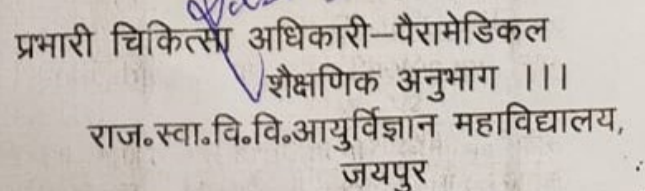 प्रभारी चिकित्सा अधिकारी–पैरामेडिकल
शैक्षणिक अनुभाग ।।।
राज॰स्वा॰वि॰वि॰आयुर्विज्ञान महाविद्यालय,
जयपुर